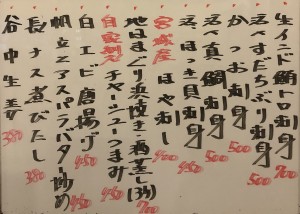 生インド鮪トロ刺身 700
活〆すだちぶり刺身
かつお刺身 500
活〆真鯛刺身 500
活ほっき貝刺身 500
宮城産 ほや刺し 400
地はまぐり浜焼き・酒蒸し(3ヶ) 700
自家製 チャーシューつまみ 450
白エビ唐揚げ 450
帆立とアスパラバター炒め 450
長ナス煮びたし 380
谷中生姜 380